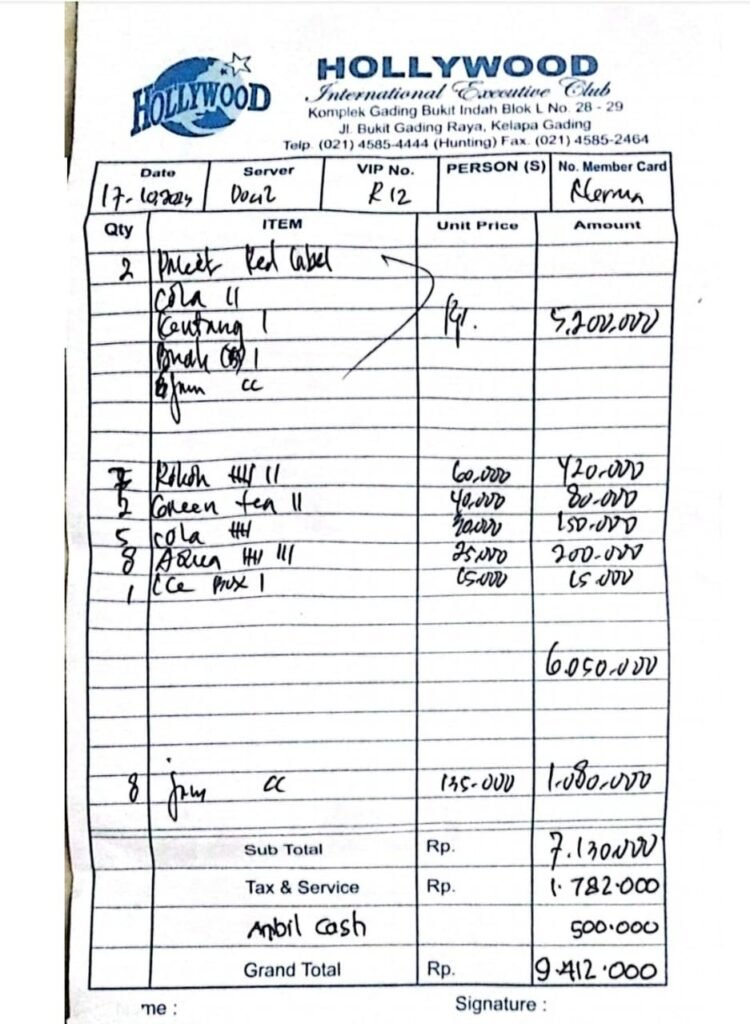 HOLLYWOOD
HOLLYWOOD
International Executive Club
Komplek Gading Bukit Indah Blok L No. 28 - 29
Jl. Bukit Gading Raya, Kelapa Gading
Telp. (021) 4585-4444 (Hunting) Fax. (021) 4585-2464
Date Server VIP No. PERSON (S) No. Member Card
R 12
Qty ITEM Unit Price Amount
2 Red Label
Cola II
Kentang I Rp. 5.200.000
I
jam CC
Rokok IIII II 60.000 420.000
2 Green tea II 40.000 80.000
5 Cola IIII 30.000 150.000
8 Aqua IIII III 25.000 200.000
1 I 15.000
6.050.000
8 jam CC 135.000 1.080.000
Sub Total Rp. 7.130.000
Tax & Service Rp. 1.782.000
Ambil Cash 500.000
Grand Total Rp. 9.412.000
me : Signature :